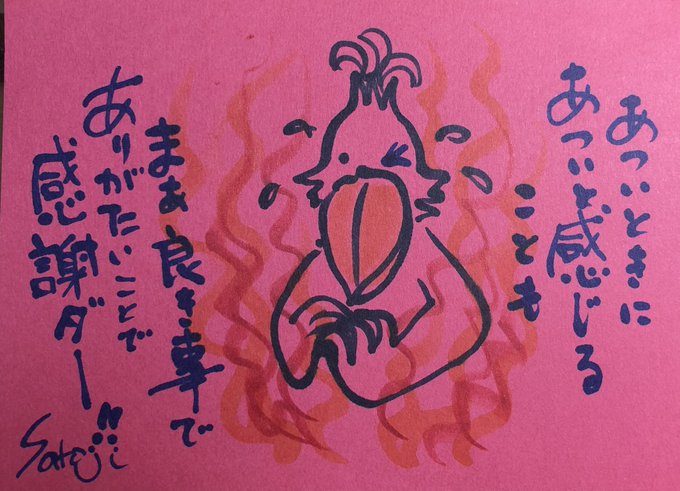 あついときに
あついと感じる
ことも
まぁ良き事で
ありがたいことで
感謝ダー!!
Satoji